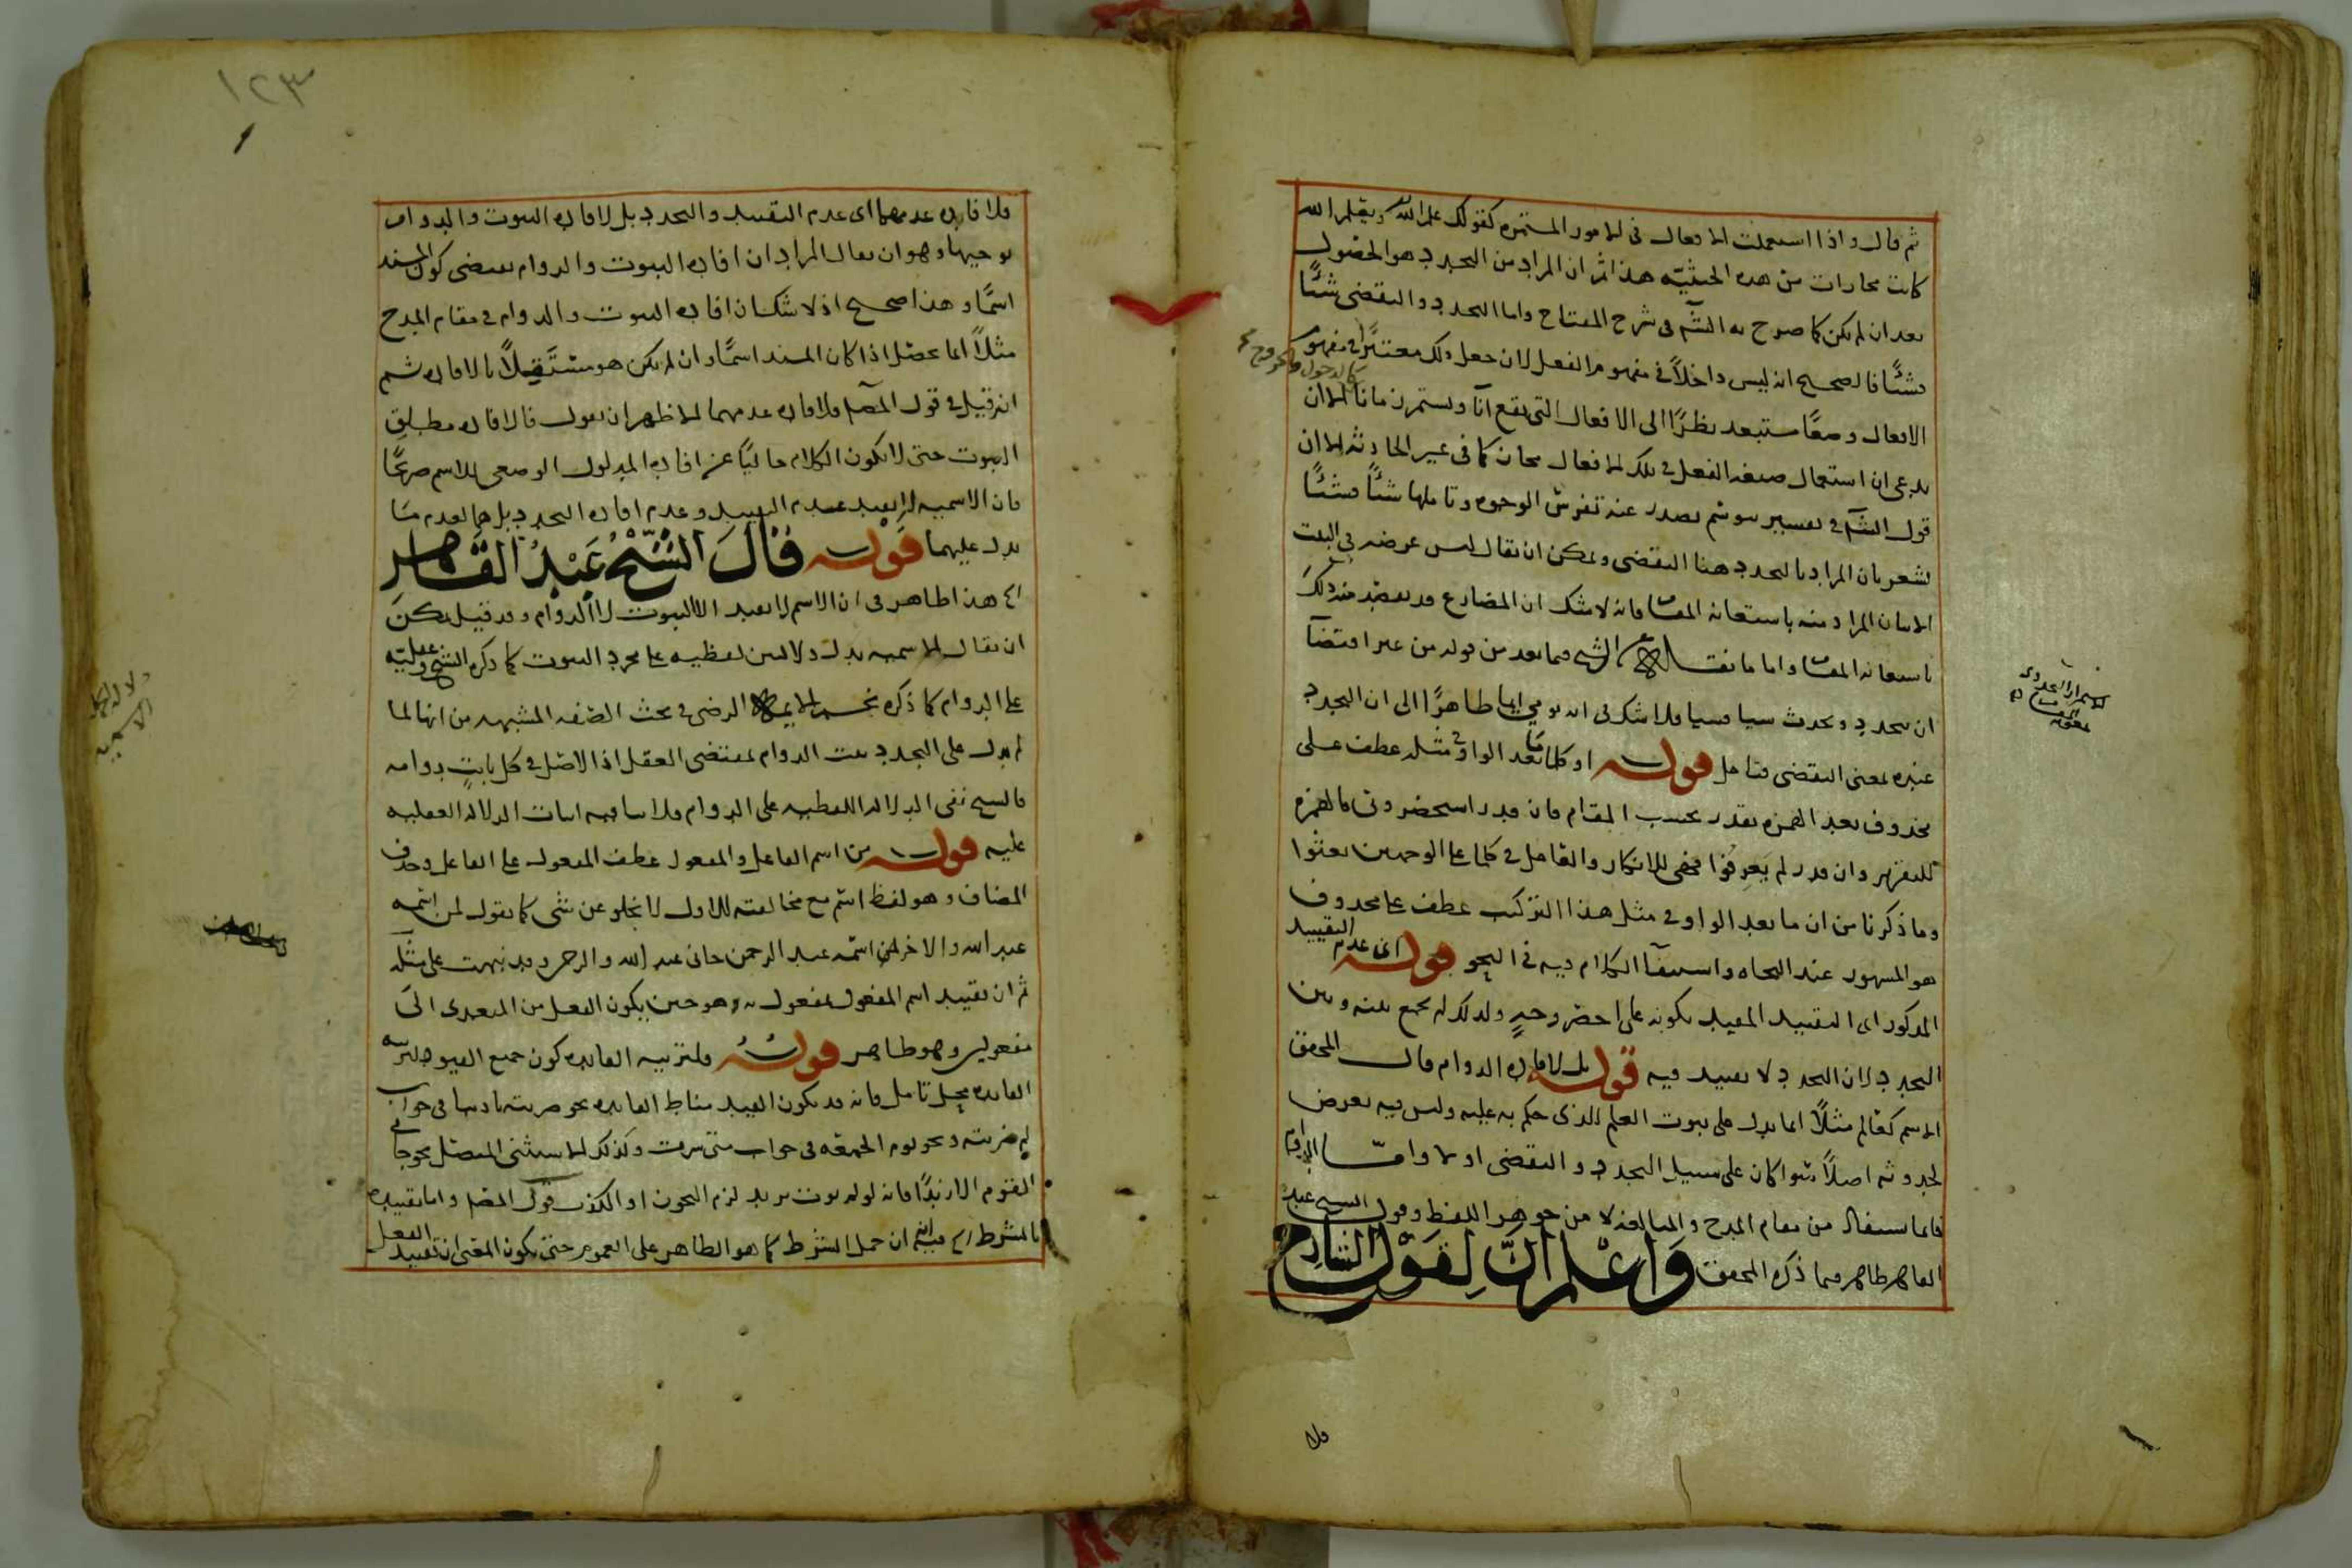 ثم قال واذا استعملت الافعال فى الامور المستمره كقولك علم الله ويعلم الله
كانت مجازات من هذه الحيثيه هذا ثم ان المراد من التجدد هو الحصول
بعد ان لم يكن كما صرح به الشم فى شرح المفتاح واما التجدد والتقضى شيئًا
فشيئًا فالصحيح انه ليس داخلاً فى مفهوم الفعل لان جعل ذلك معتبرًا فى مفهوم
كالدخول والخروج
الافعال وضعًا مستبعد نظرًا الى الافعال التى تقع آنًا ويستمر زمانًا الا ان
يدعى ان استعمال صيغه الفعل فى تلك الافعال مجاز كما فى غير الحادثه الا ان
قول الشم فى تفسير يتوسم يصدر عنه تفرس الوجوه وتاملها شيئًا فشيئًا
يشعر بان المراد بالتجدد هنا التقضى ويمكن ان يقال ليس غرضه فى البيت
الا بيان المراد منه باستعانه المقام فانه لا شك ان المضارع قد يقصد منه ذلك
باستعانه المقام واما ما نقله عن الشيخ فيما بعد من قوله من غير اقتضآ
ان يتجدد ويحدث شيا فشيا فلا شك فى انه يومى ايما ظاهرًا الى ان التجدد
عنده بمعنى التقضى فتامل قوله او كلما ما بعد الواو فى مثله عطف على
محذوف بعد الهمزه يقدر بحسب المقام فان قدر استحضروت فالهمزه
للتقرير وان قدر لم يعرفوا فهى للانكار والعامل فى كلما على الوجهين بعثوا
وما ذكرنا من ان ما بعد الواو فى مثل هذا التركيب عطف على محذوف
هو المشهور عند النحاه واستيفآ الكلام فيه فى النحو قوله اى عدم التقييد
المذكور اى التقييد المفيد بكونه على اخصر وجهٍ ولذلك لم يجمع بينه وبين
التجدد لان التجدد لا تقييد فيه قوله بل لافاده الدوام قال المحقق
الاسم كعالم مثلاً انما يدل على ثبوت العلم للذى حكم به عليه وليس فيه تعرض
لحدوثه اصلاً سوا كان على سبيل التجدد والتقضى او لا وامّا الدوام
فانما يستفاد من مقام المدح والمبالغه لا من جوهر اللفظ وقول الشيخ عبد
القاهر ظاهر فيما ذكره المحقق واعلم ان لقول الشارح
فلا
١٢٣
فلافاده عدمهما اى عدم التقييد والتجدد بل لافاده الثبوت والدوام
توجيها وهو ان يقال المراد ان افاده الثبوت والدوام يقتضى كون المسند
اسمًا وهذا صحيح اذ لا شك ان افاده الثبوت والدوام فى مقام المدح
مثلاً انما يحصل اذا كان المسند اسمًا وان لم يكن هو مستقلاً بالافاده ثم
انه قيل فى قول المصم فلافاده عدمهما الاظهر ان يقول فالافاده مطلق
الثبوت حتى لا يكون الكلام خاليًا عن افاده المدلول الوضعى للاسم صريحًا
فان الاسميه لا يفيد عدم التقييد وعدم افاده التجدد بل هما لعدم ما
يدل عليهما قوله قال الشيخ عبد القاهر
اه هذا ظاهر فى ان الاسم لا يفيد الا الثبوت لا الدوام وقد قيل يمكن
ان يقال الاسميه يدل دلالتين لفظيه على مجرد الثبوت كما ذكره الشيخ وعقليّه
على الدوام كما ذكره نجم الايمه الرضى فى بحث الصفه المشبهه من انها لما
لم يدل على التجدد ثبت الدوام بمقتضى العقل اذ الاصل فى كل ثابت دوامه
فالشيخ نفى الدلاله اللفظيه على الدوام فلا ينافيه اثبات الدلاله العقليه
عليه قوله من اسم الفاعل والمفعول عطف المفعول على الفاعل وحذف
المضاف وهو لفظ اسم مع مخالفته للاول لا يخلو عن شى كما يقول لمن اسمه
عبد الله والاخر لمن اسمه عبد الرحمن جانى عبد الله والرحمن وقد نبهت على مثله
ثم ان تقييد اسم المفعول بمفعول به هو حين يكون الفعل من المتعدى الى
مفعولين وهو ظاهر قوله ولتربيه الفايده كون جميع القيود لتربيه
الفايده محل تامل فانه قد يكون القيد مناط الفايده نحو ضربته تاديبا فى جواب
لم ضربته ونحو يوم الجمعه فى جواب متى سرت وكذلك المستثنى المتصل نحو جانى
القوم الا زيدًا فانه لولم يوت بزيد لزم التجوز او الكذب قول المصم واما تقييده
بالشرط اه فيه ان حمل الشرط كما هو الظاهر على العموم حتى يكون المعنى ان تقييد الفعل